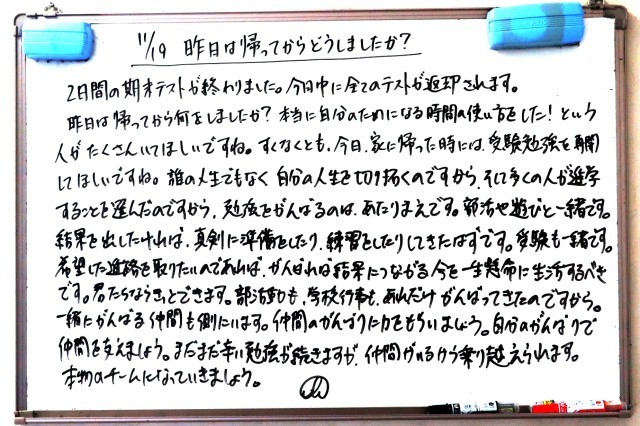 11/19 昨日は帰ってからどうしましたか?
2日間の期末テストが終わりました。今日中に全てのテストが返却されます。
昨日は帰ってから何をしましたか?本当に自分のためになる時間の使い方をした!という
人がたくさんいてほしいですね。すくなくとも、今日、家に帰った時には、受験勉強を再開
してほしいですね。誰の人生でもなく自分の人生を切り拓くのですから、そして多くの人が進学
することを選んだのですから、勉強をがんばるのは、あたりまえです。部活や遊びと一緒です。
結果を出したければ、真剣に準備をしたり、練習をしたりしてきたはずです。受験も一緒です。
希望した進路を取りたいのであれば、がんばれば結果につながる今を一生懸命に生活するべき
です。君たちならきっとできます。部活動も、学校行事も、あれだけがんばってきたのですから。
一緒にがんばる仲間も側にいます。仲間のがんばりに力をもらいましょう。自分のがんばりで
仲間を支えましょう。まだまだ辛い勉強が続きますが、仲間がいるから乗り越えられます。
本物のチームになっていきましょう。